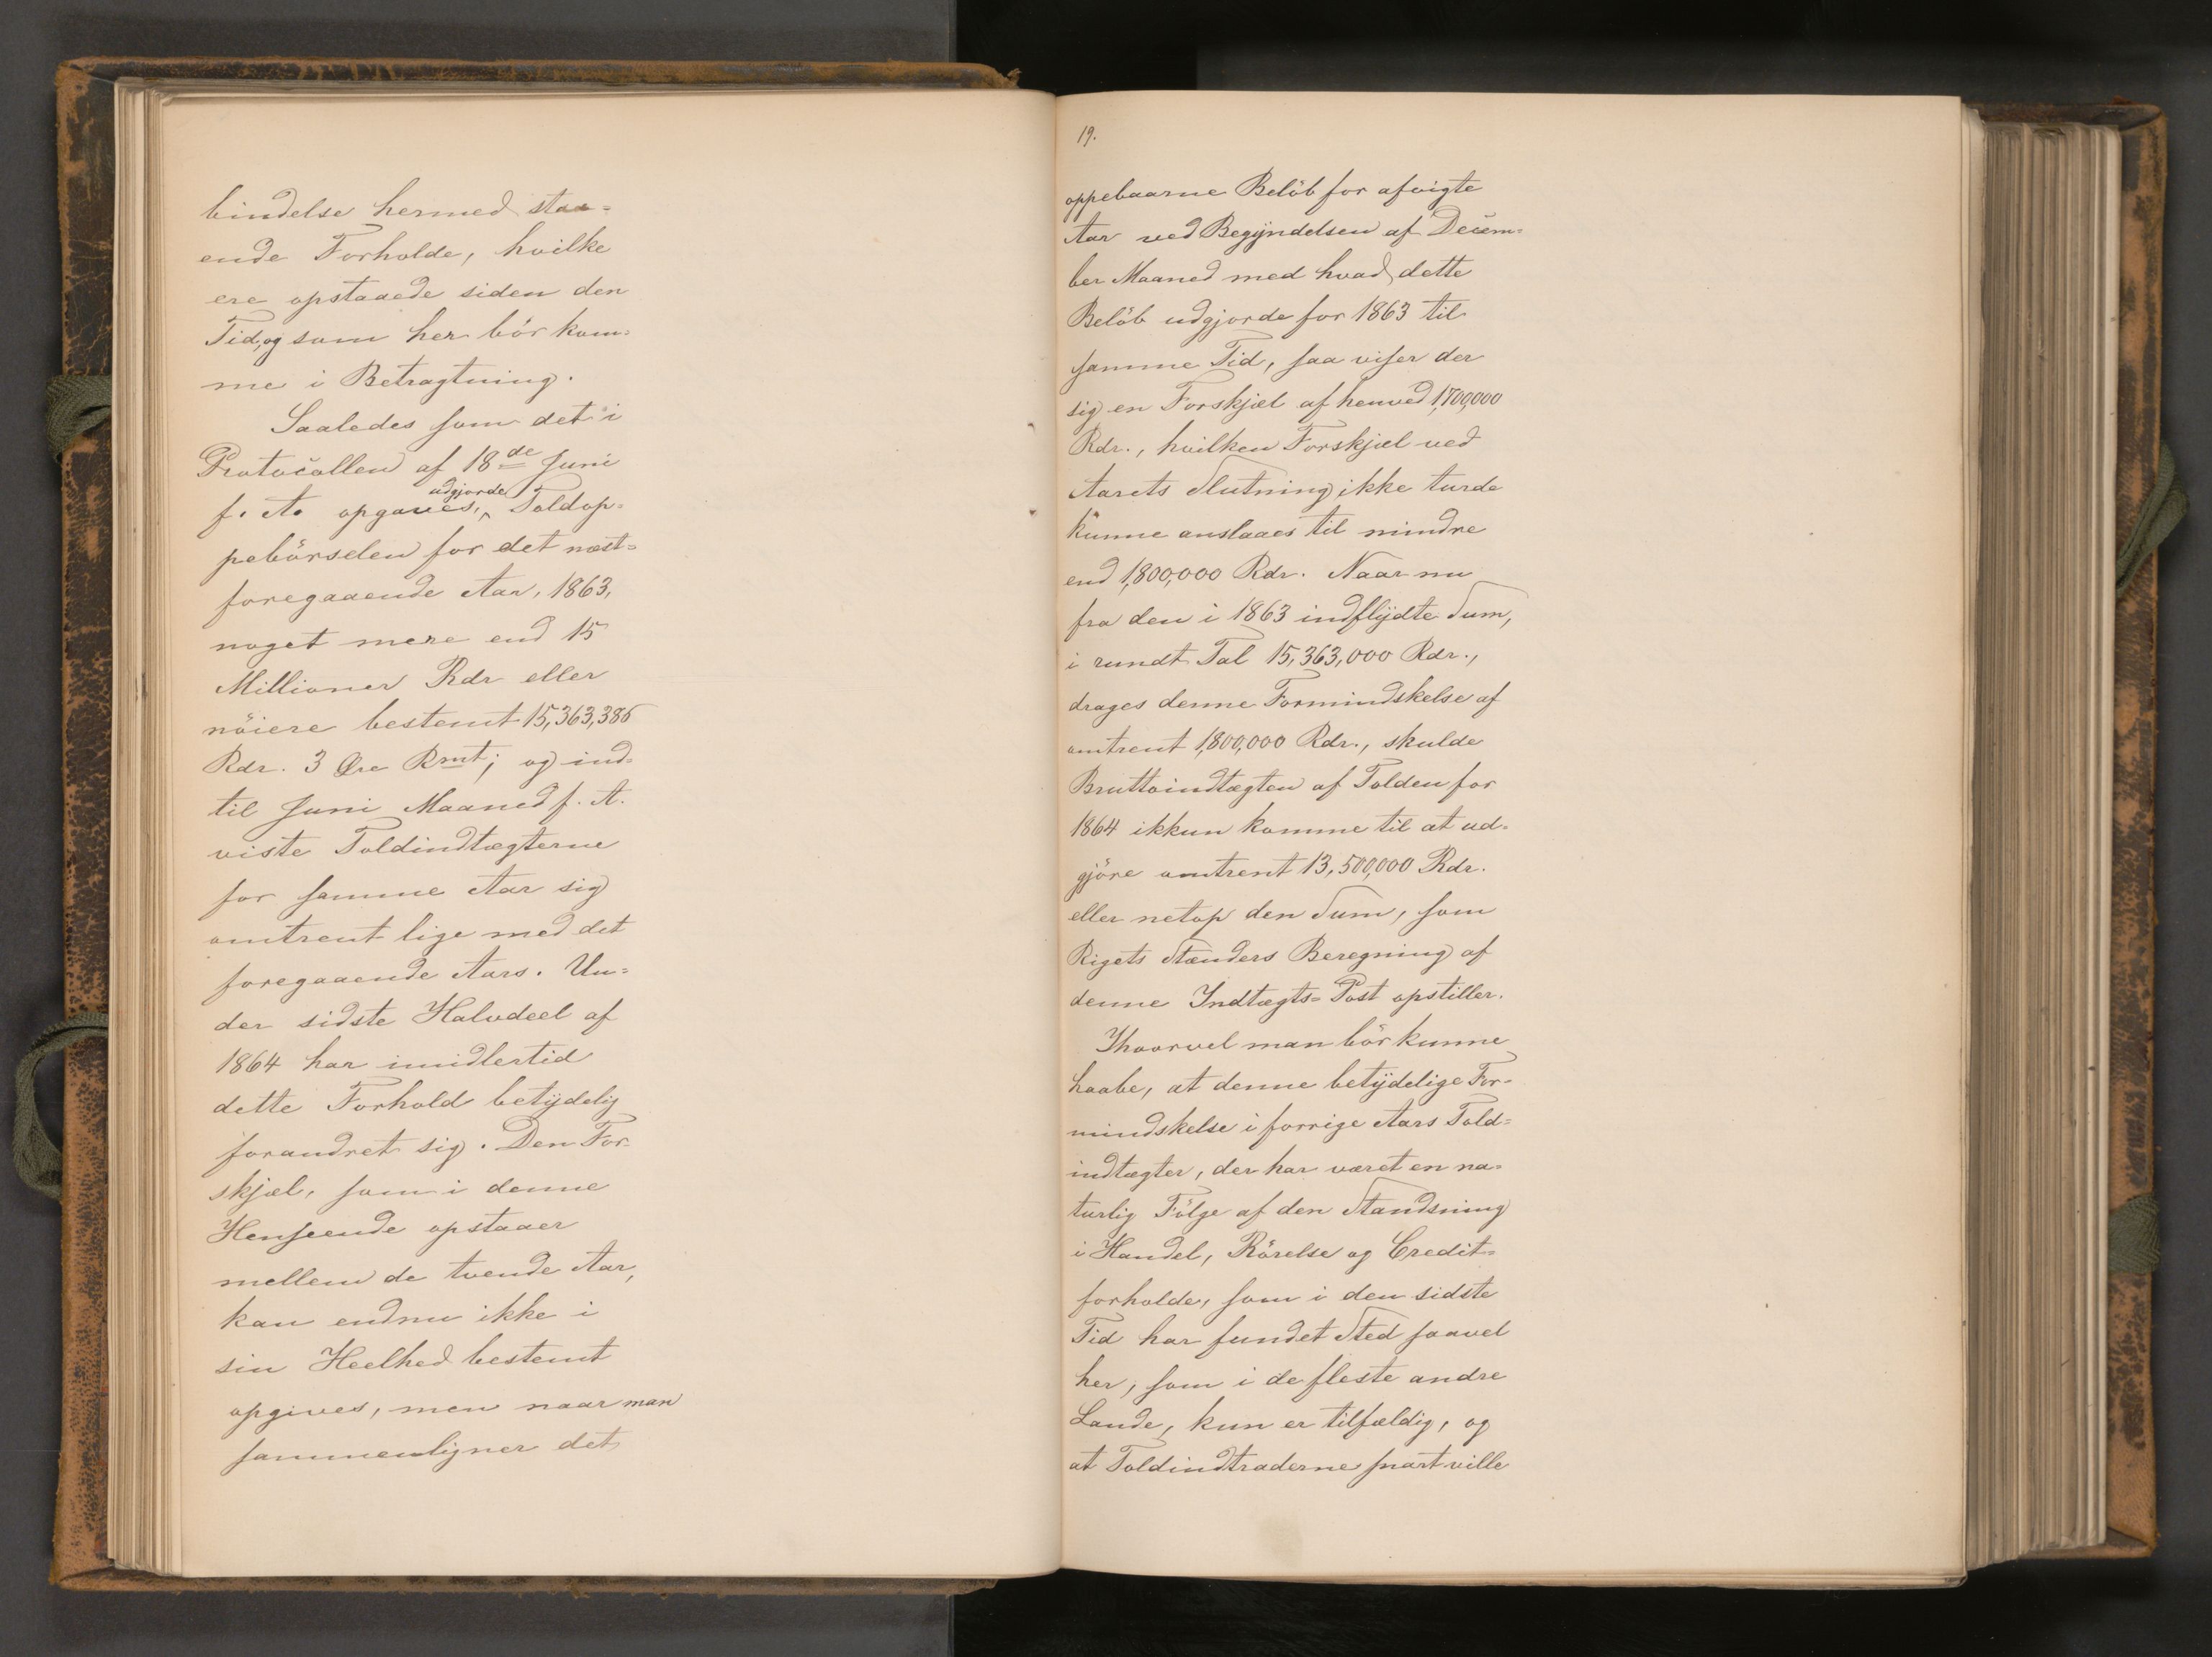 bindelse hermed staa=
ende Forholde, hvilke
ere opstaaede siden den
Tid, og som her bör kom=
me i Betragtning.
Saaledes som det i
Protocollen af 18de Juni
f. A. opgaves, udgjorde Toldop=
pebörselen for det næst=
foregaaende Aar, 1863,
noget mere end 15
Millioner Rdr eller
nöiere bestemt 15,363,386
Rdr. 3 Øre Rmt; og ind=
til Juni Maaned f. A.
viste Toldindtægterne
for samme Aar sig
omtrent lige med det
foregaaende Aars. Un=
der sidste Halvdeel af
1864 har imidlertid
dette Forhold betydelig
forandret sig. Den For=
skjæl, som i denne
Henseende opstaaer
mellem de tvende Aar,
kan endnu ikke i
sin Heelhed bestemt
opgives, men naar man
sammenligner det
19.
oppebaarne Belöb for afvigte
Aar ved Begyndelsen af Decem=
ber Maaned med hvad dette
Belöb udgjorde for 1863 til
samme Tid, saa viser der
sig en Forskjæl af henved 1,700,000
Rdr., hvilken Forskjæl ved
Aarets Slutning ikke turde
kunne anslaaes til mindre
end 1,800,000 Rdr. Naar nu
fra den i 1863 indflydte Sum,
i rundt Tal 15,363,000 Rdr.,
drages denne Formindskelse af
omtrent 1,800,000 Rdr., skulde
Bruttoindtægten af Tolden for
1864 ikkun komme til at ud=
gjöre omtrent 13,500,000 Rdr.
eller netop den Sum, som
Rigets Stænders Beregning af
denne Indtægts=Post opstiller.
Ihvorvel man bör kunne
haabe, at denne betydelige For=
mindskelse i forrige Aars Told=
indtægter, der har været en na=
turlig Fölge af den Standsning
i Handel, Rörelse og Credit=
forholde, som i den sidste
Tid har fundet Sted saavel
her, som i de fleste andre
Lande, kun er tilfældig, og
at Toldindtraderne snart ville